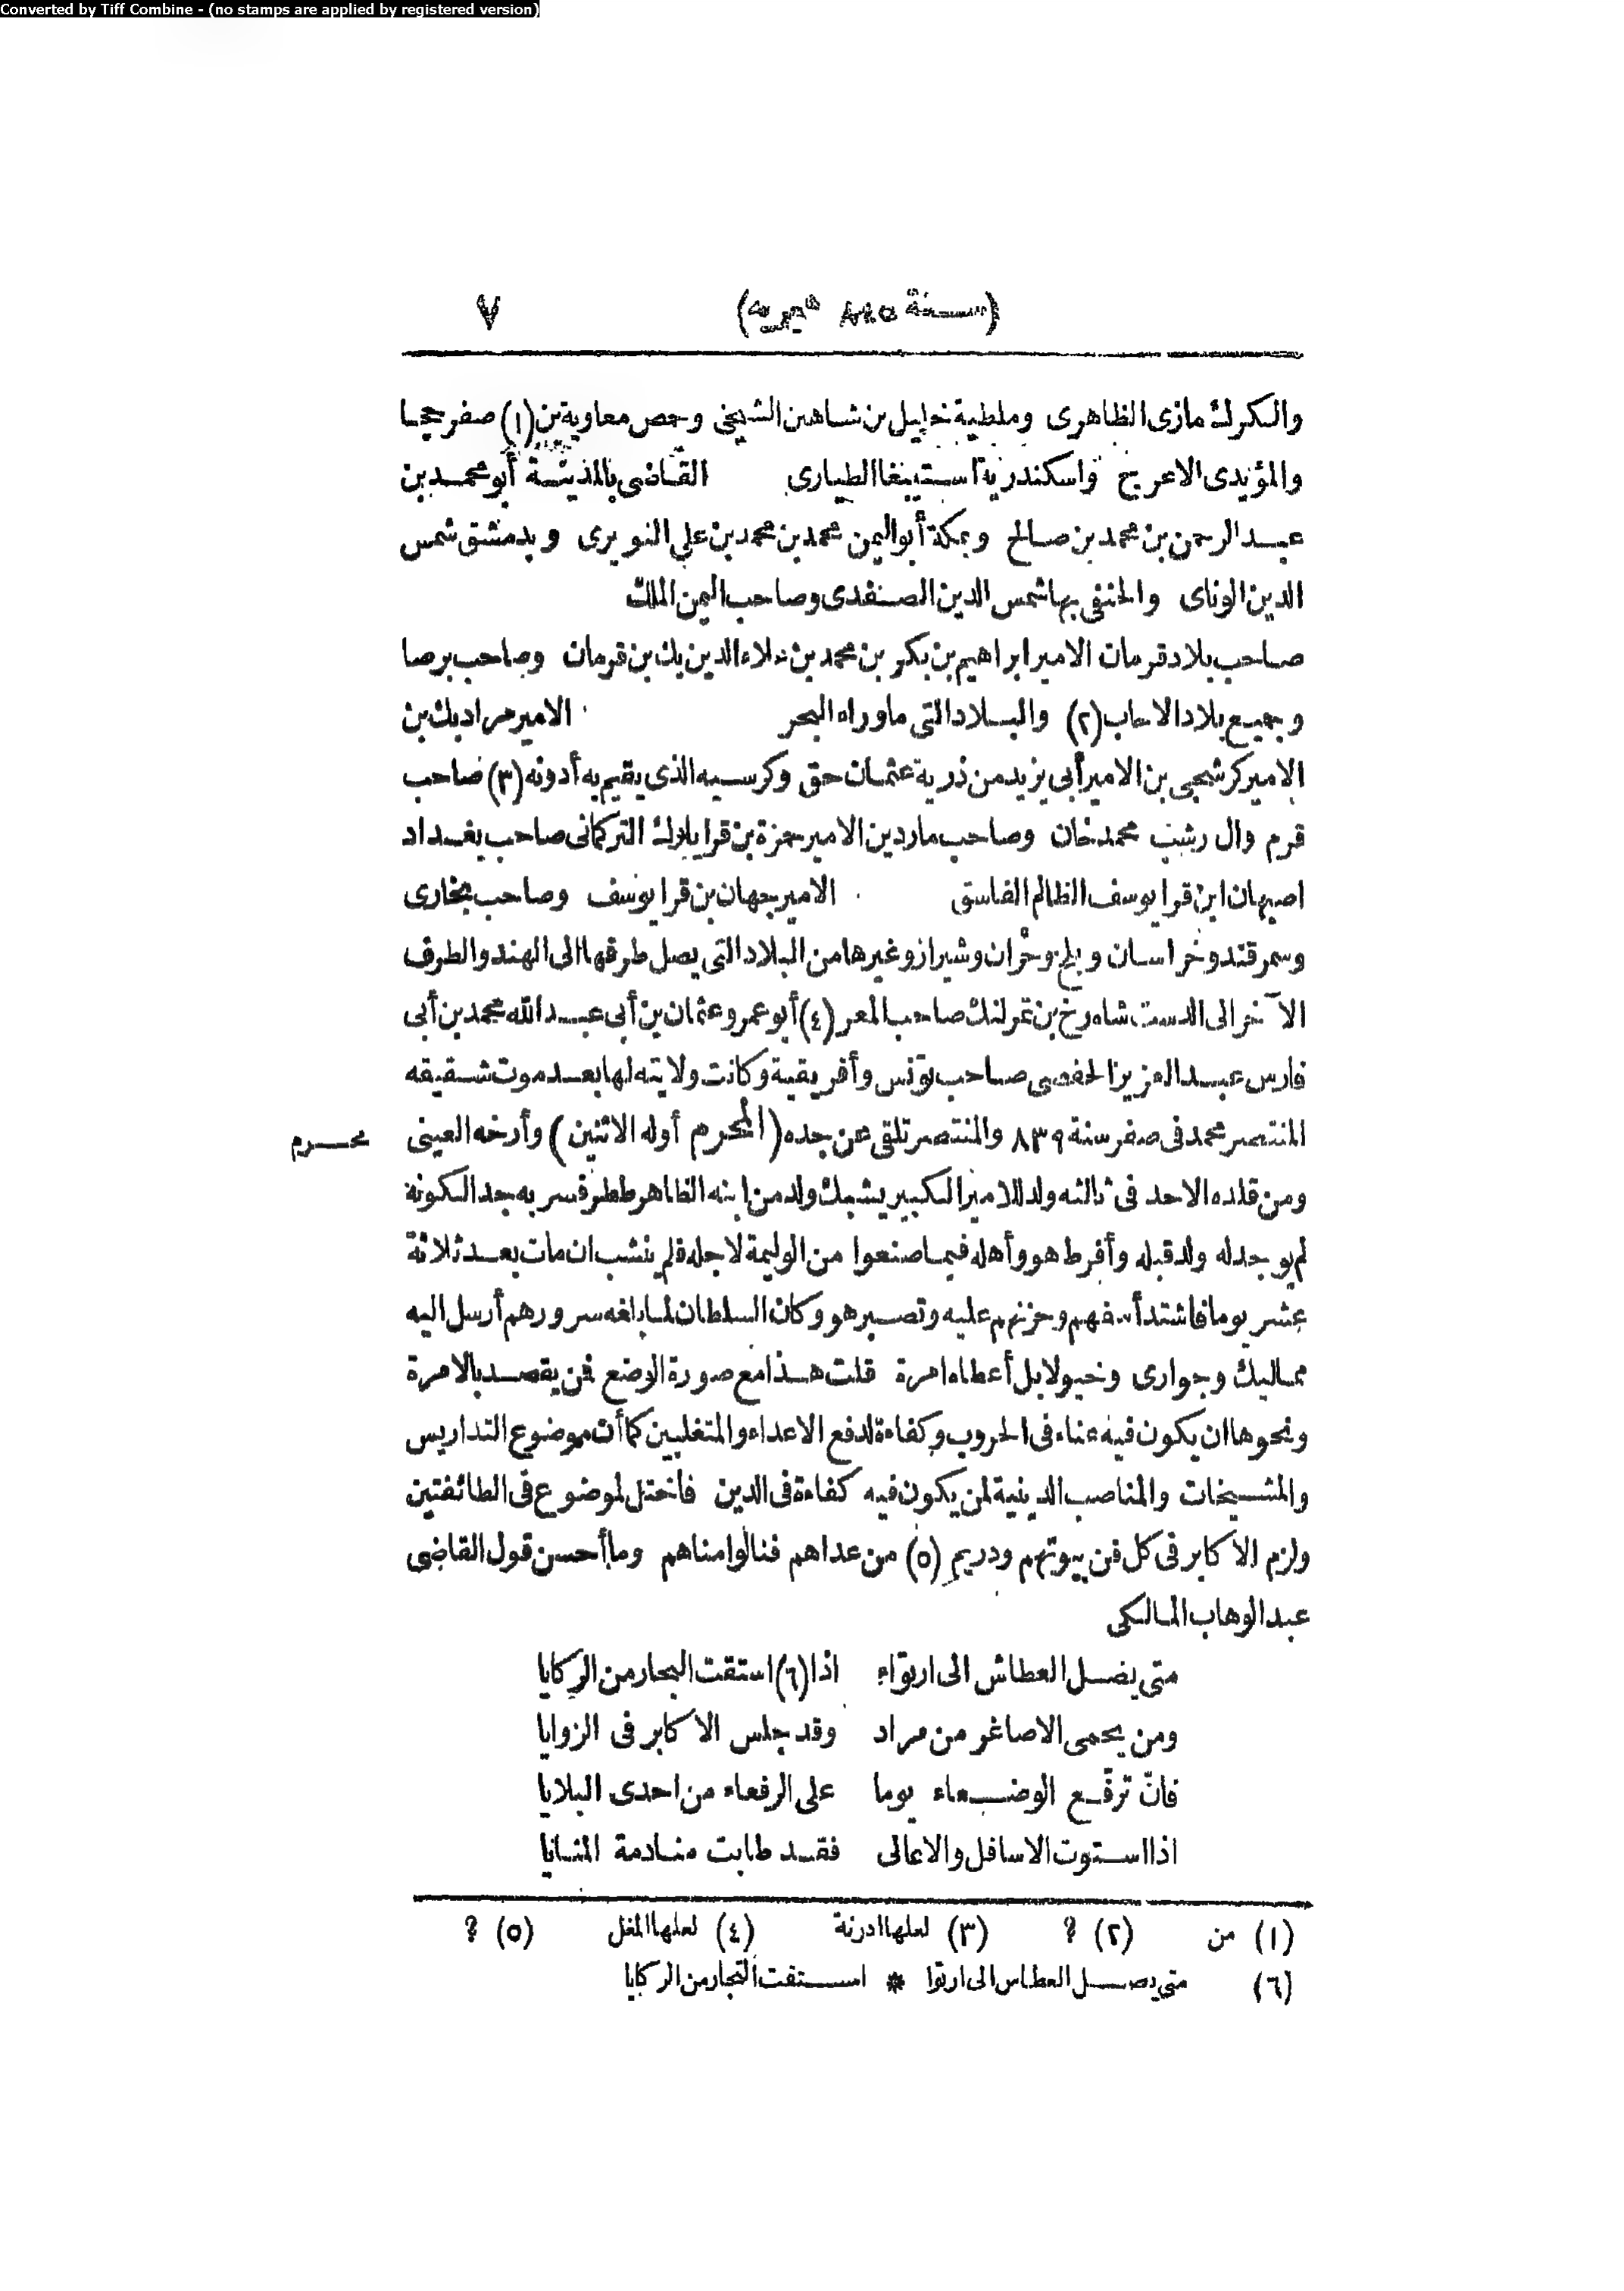 Converted by Tiff Combine - (no stamps are applied by registered version)
(سنة ٨٤٥ هجرية) ٧
والكرك مازى الظاهرى وملطية خليل بن شاهين الشيخى وحمص معاوية بن (١) صفر حجا
والمؤيدى الاعرج واسكندرية استيبغا الطيارى القاضى بالمدينة أبو محمد بن
عبد الرحمن بن محمد بن صالح وبمكة أبو اليمن محمد بن محمد بن على النويرى وبدمشق شمس
الدين الوناى والحنفى بها شمس الدين الصفدى وصاحب اليمن الملك
صاحب بلاد قرمان الامير ابراهيم بن بكر بن محمد بن علاء الدين بك بن قرمان وصاحب برصا
وجميع بلاد (٢) والبلاد التى ماوراء البحر الامير مراد بك بن
الامير كرشجى بن الامير أبى يزيد من ذرية عثمان حق وكرسيه الذى يقيم به أدونه (٣) صاحب
قرم وال محمد خان وصاحب ماردين الامير حمزة بن قرا يلك التركمانى صاحب بغداد
اصبهان ابن قرا يوسف الظالم الفاسق الامير جهان بن قرا يوسف وصاحب بخارى
وسمرقند وخراسان وبلخ وشيراز وغيرها من البلاد التى يصل طرفها الى الهند والطرف
الآخر الى الدست شاه رخ بن تمرلنك صاحب المعر (٤) أبو عمرو عثمان بن أبى عبد الله محمد بن أبى
فارس عبد العزيز الحفصى صاحب تونس وأفريقية وكانت ولايته لها بعد موت شقيقه
المنتصر محمد فى صفر سنة ٨٣٩ والمنتصر تلقى عن جده (المحرم أوله الاثنين) وأرخه العينى
محرم
ومن قلده الاحد فى ثالثه ولد للامير الكبير يشبك ولد من ابنه الظاهر ططر فسر به جدا لكونه
لم يوجد له ولد قبله وأفرط هو وأهله فيما صنعوا من الوليمة لاجله فلم ينشب ان مات بعد ثلاثة
عشر يوما فاشتد أسفهم وحزنهم عليه وتصبر هو وكان السلطان لما بلغه سرورهم أرسل اليه
مماليك وجوارى وخيولا بل أعطاه امرة قلت هذا مع صورة الوضع فمن يقصد بالامرة
ونحوها ان يكون فيه عناء فى الحروب وكفاءة لدفع الاعداء والمتغلبين كما أن موضوع التداريس
والمشيخات والمناصب الدينية لمن يكون فيه كفاءة فى الدين فاختل لموضوع فى الطائفتين
ولزم الاكابر فى كل فن بيوتهم ودريم (٥) من عداهم فنالوا مناهم وما أحسن قول القاضى
عبد الوهاب المالكى
متى يضل العطاش الى ارتواء اذا (٦) استقت البحار من الركايا
ومن يحمى الاصاغر من مراد وقد جلس الاكابر فى الزوايا
فانّ ترفّع الوضعاء يوما على الرفعاء من احدى البلايا
اذا استوت الاسافل والاعالى فقد طابت منادمة المنايا
(١) من (٢) ؟ (٣) لعلها ادرنة (٤) لعلها المغل (٥) ؟
(٦) متى يصل العطاس الى ارتوا * استفت التجار من الركايا